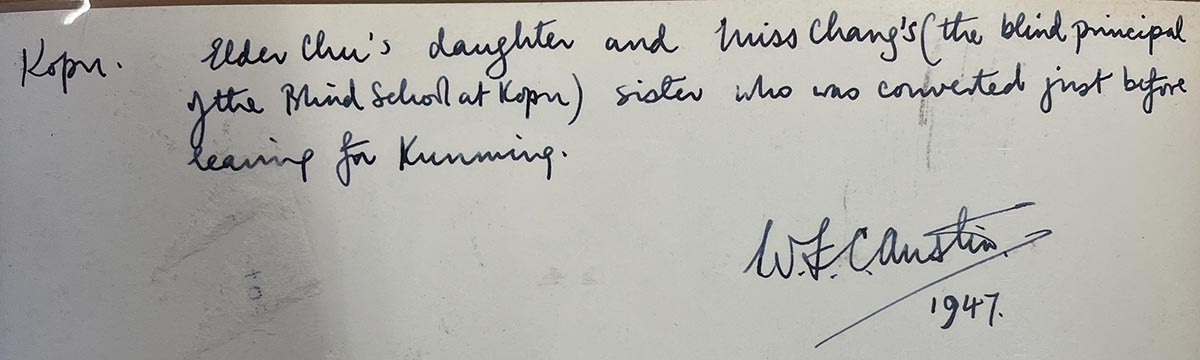 Kopu. Elder Chu's daughter and Miss Chang's (the blind principal
of the Blind School at Kopu) sister who was converted just before
leaving for Kunming.
W.F.C. Austin.
1947.